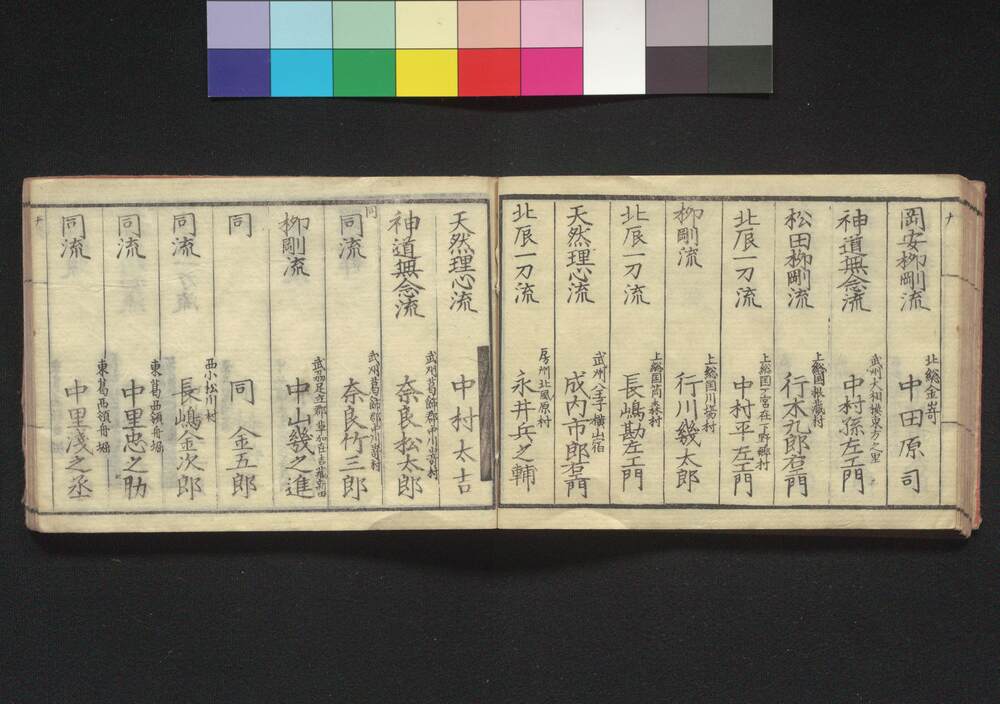 ナ
岡安柳剛流 北総金嵜 中田原司
神道無念流 武州大相模東方之里 中村孫左エ門
松田柳剛流 上総国根蔵村 行木九郎右エ門
北辰一刀流 上総国一宮在下野郷村 中村平左エ門
柳剛流 上総国川場村 行川幾太郎
北辰一刀流 上総国関森村 長嶋勘左エ門
天然理心流 武州八王子横山宿 成内市郎右エ門
北辰一刀流 房州北風原村 永井兵之輔
天然理心流 中村太吉
神道無念流 武州葛飾郡中川嵜村 奈良松太郎
同 同流 武州葛飾郡中川嵜村 奈良竹三郎
柳剛流 中山幾之進
同 同 金五郎
同流 西小松川村 長嶋金次郎
同流 東葛西領舟堀 中里忠之助
同流 東葛西領舟堀 中里浅之丞